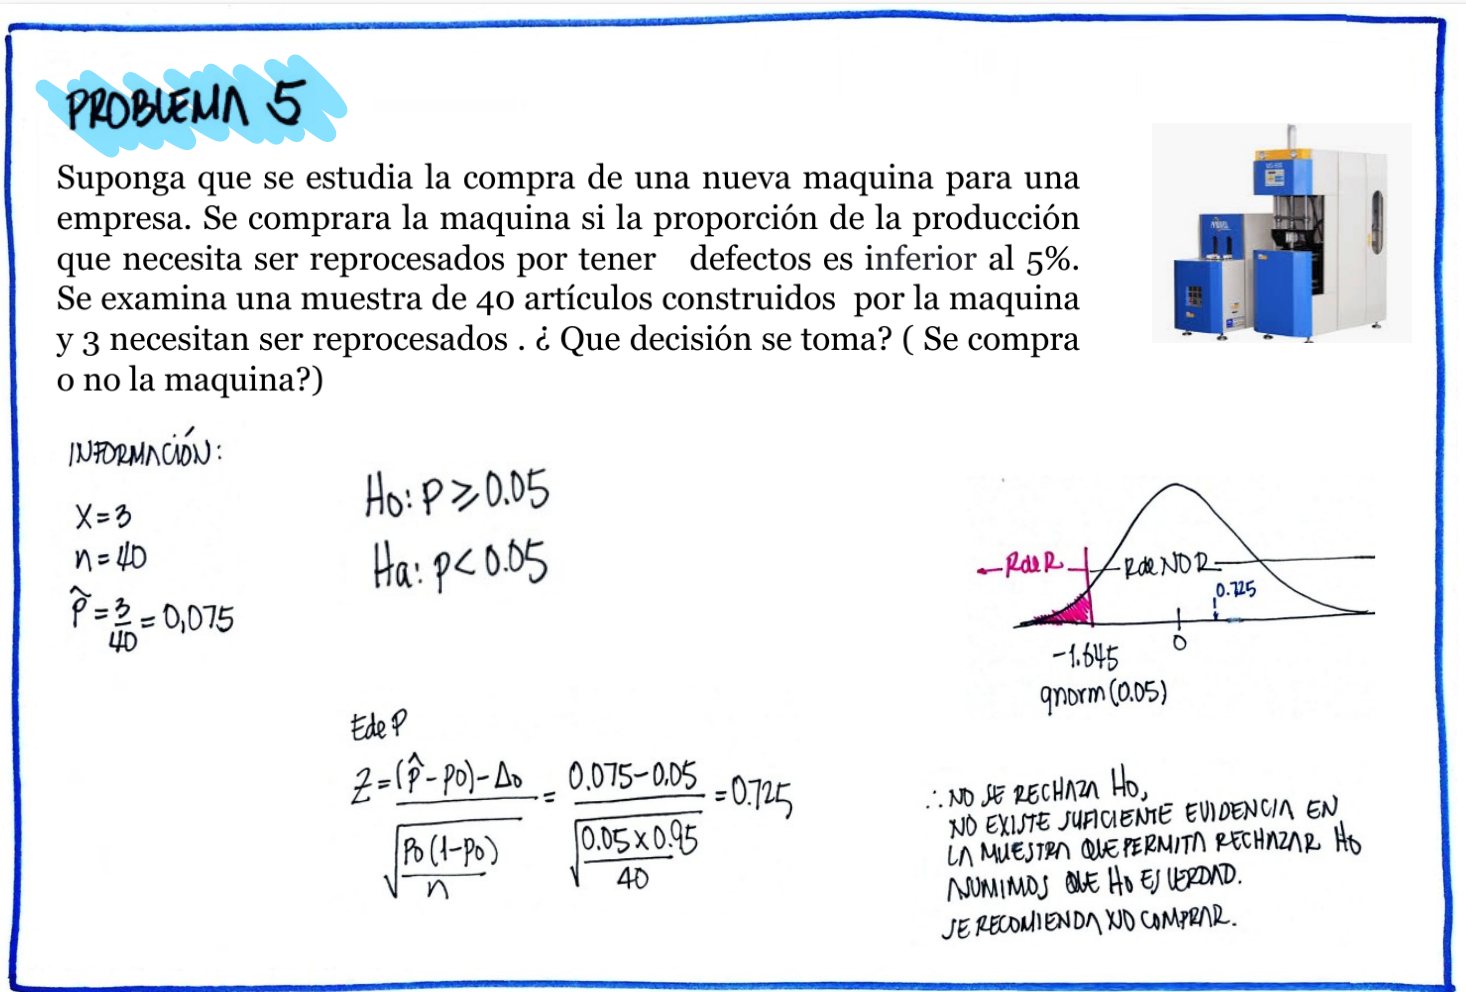 PROBLEMA 5
Suponga que se estudia la compra de una nueva maquina para una
empresa. Se comprara la maquina si la proporción de la producción
que necesita ser reprocesados por tener defectos es inferior al 5%.
Se examina una muestra de 40 artículos construidos por la maquina
y 3 necesitan ser reprocesados . ¿ Que decisión se toma? ( Se compra
o no la maquina?)
INFORMACIÓN:
X=3
n=40
p̂ = 3/40 = 0,075
Ho: P ≥ 0.05
Ha: p < 0.05
R de R
R de NO R
0.725
-1.645
0
qnorm(0.05)
E de P
Z = (p̂ - po) - Δo / √(Po(1-Po)/n) = 0.075-0.05 / √(0.05 x 0.95/40) = 0.725
∴ NO SE RECHAZA Ho,
NO EXISTE SUFICIENTE EVIDENCIA EN
LA MUESTRA QUE PERMITA RECHAZAR Ho
ASUMIMOS QUE Ho ES VERDAD.
SE RECOMIENDA NO COMPRAR.